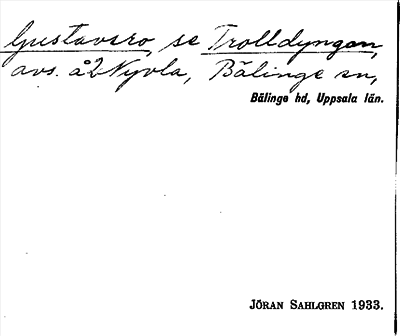 Gustavsro, se Trolldyngan,
avs. å 2 Nyvla, Bälinge sn,
Bälinge hd, Uppsala län.
JÖRAN SAHLGREN 1933.